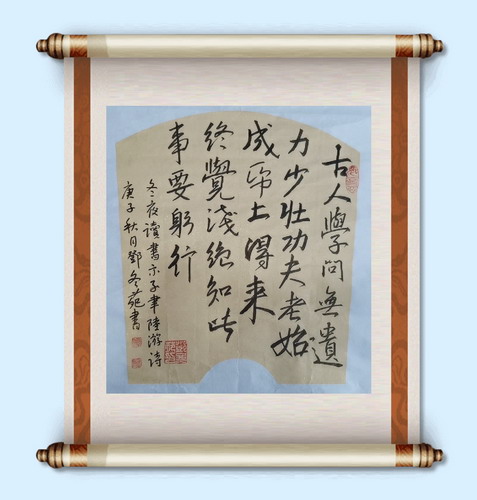 古人學問無遺
力少壯功夫老始
成帋上得来
終覺淺絕知此
事要躬行
冬夜讀書示子聿陸游詩
庚子秋月鄧冬苑書